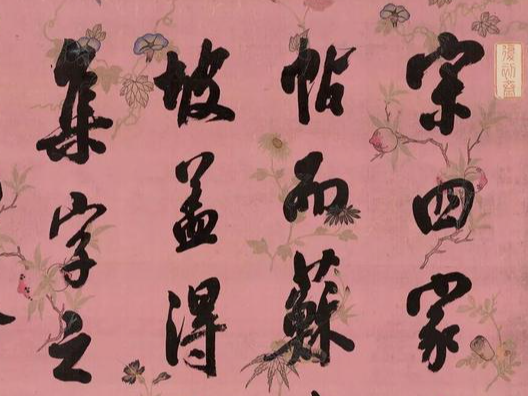 復初齋
宋四家
帖而蘇
坡蓋得
集字之